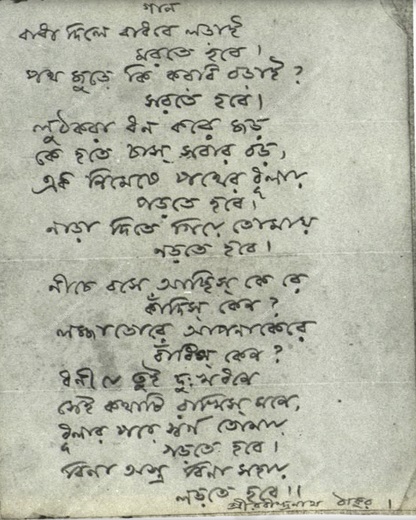 গান
বাধা দিলে বাধবে লড়াই
মরতে হবে।
পথ জুড়ে কি করবি বড়াই?
সরতে হবে।
লুঠকরা ধন করে জড়
কে হতে চাস্ সবার বড়,
এক নিমেষে পথের ধূলায়
পড়তে হবে।
নাড়া দিতে গিয়ে তোমায়
নড়তে হবে।
নীচে বসে আছিস্ কে রে
কাঁদিস্ কেন?
লজ্জাডোরে আপনাকেরে
বাঁধিস্ কেন?
ধনী যে তুই দুঃখধনে
সেই কথাটি রাখিস্ মনে,
ধূলার পরে স্বর্গ তোমায়
গড়তে হবে।
বিনা অস্ত্র বিনা সহায়
লড়তে হবে।।
শ্রীরবীন্দ্রনাথ ঠাকুর।